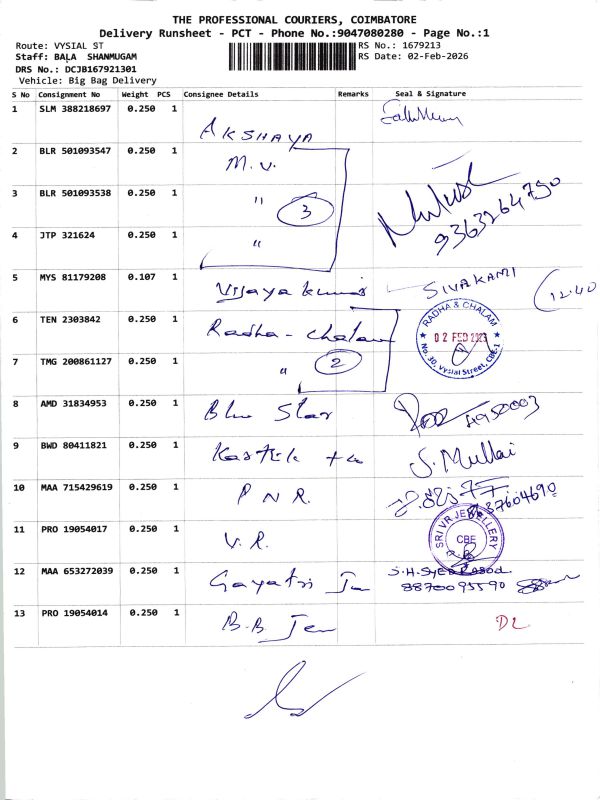 THE PROFESSIONAL COURIERS, COIMBATORE
Delivery Runsheet - PCT - Phone No.:9047080280 - Page No.:1
Route: VYSIAL ST
RS No.: 1679213
Staff: BALA SHANMUGAM
RS Date: 02-Feb-2026
DRS No.: DCJB167921301
Vehicle: Big Bag Delivery
S No Consignment No Weight PCS Consignee Details Remarks Seal & Signature
1 SLM 388218697 0.250 1 AKSHAYA
2 BLR 501093547 0.250 1 M.V.
3 BLR 501093538 0.250 1 " 3
9363264750
4 JTP 321624 0.250 1 "
5 MYS 81179208 0.107 1 Vijaya kumar SIVAKAMI 12.40
6 TEN 2303842 0.250 1 Radha - chalam
RADHA & CHALAM
02 FEB
No. 30, Vysial Street, CBE-1
7 TMG 200861127 0.250 1 " 2
8 AMD 31834953 0.250 1 Blue Star
9 BWD 80411821 0.250 1 Karthik S. Mullai
10 MAA 715429619 0.250 1 P N R.
11 PRO 19054017 0.250 1 V.R.
SRI VR JEWELLERY
CBE
12 MAA 653272039 0.250 1 Gayatri S.H. SYED
8870095590
13 PRO 19054014 0.250 1 B.B Jew DL